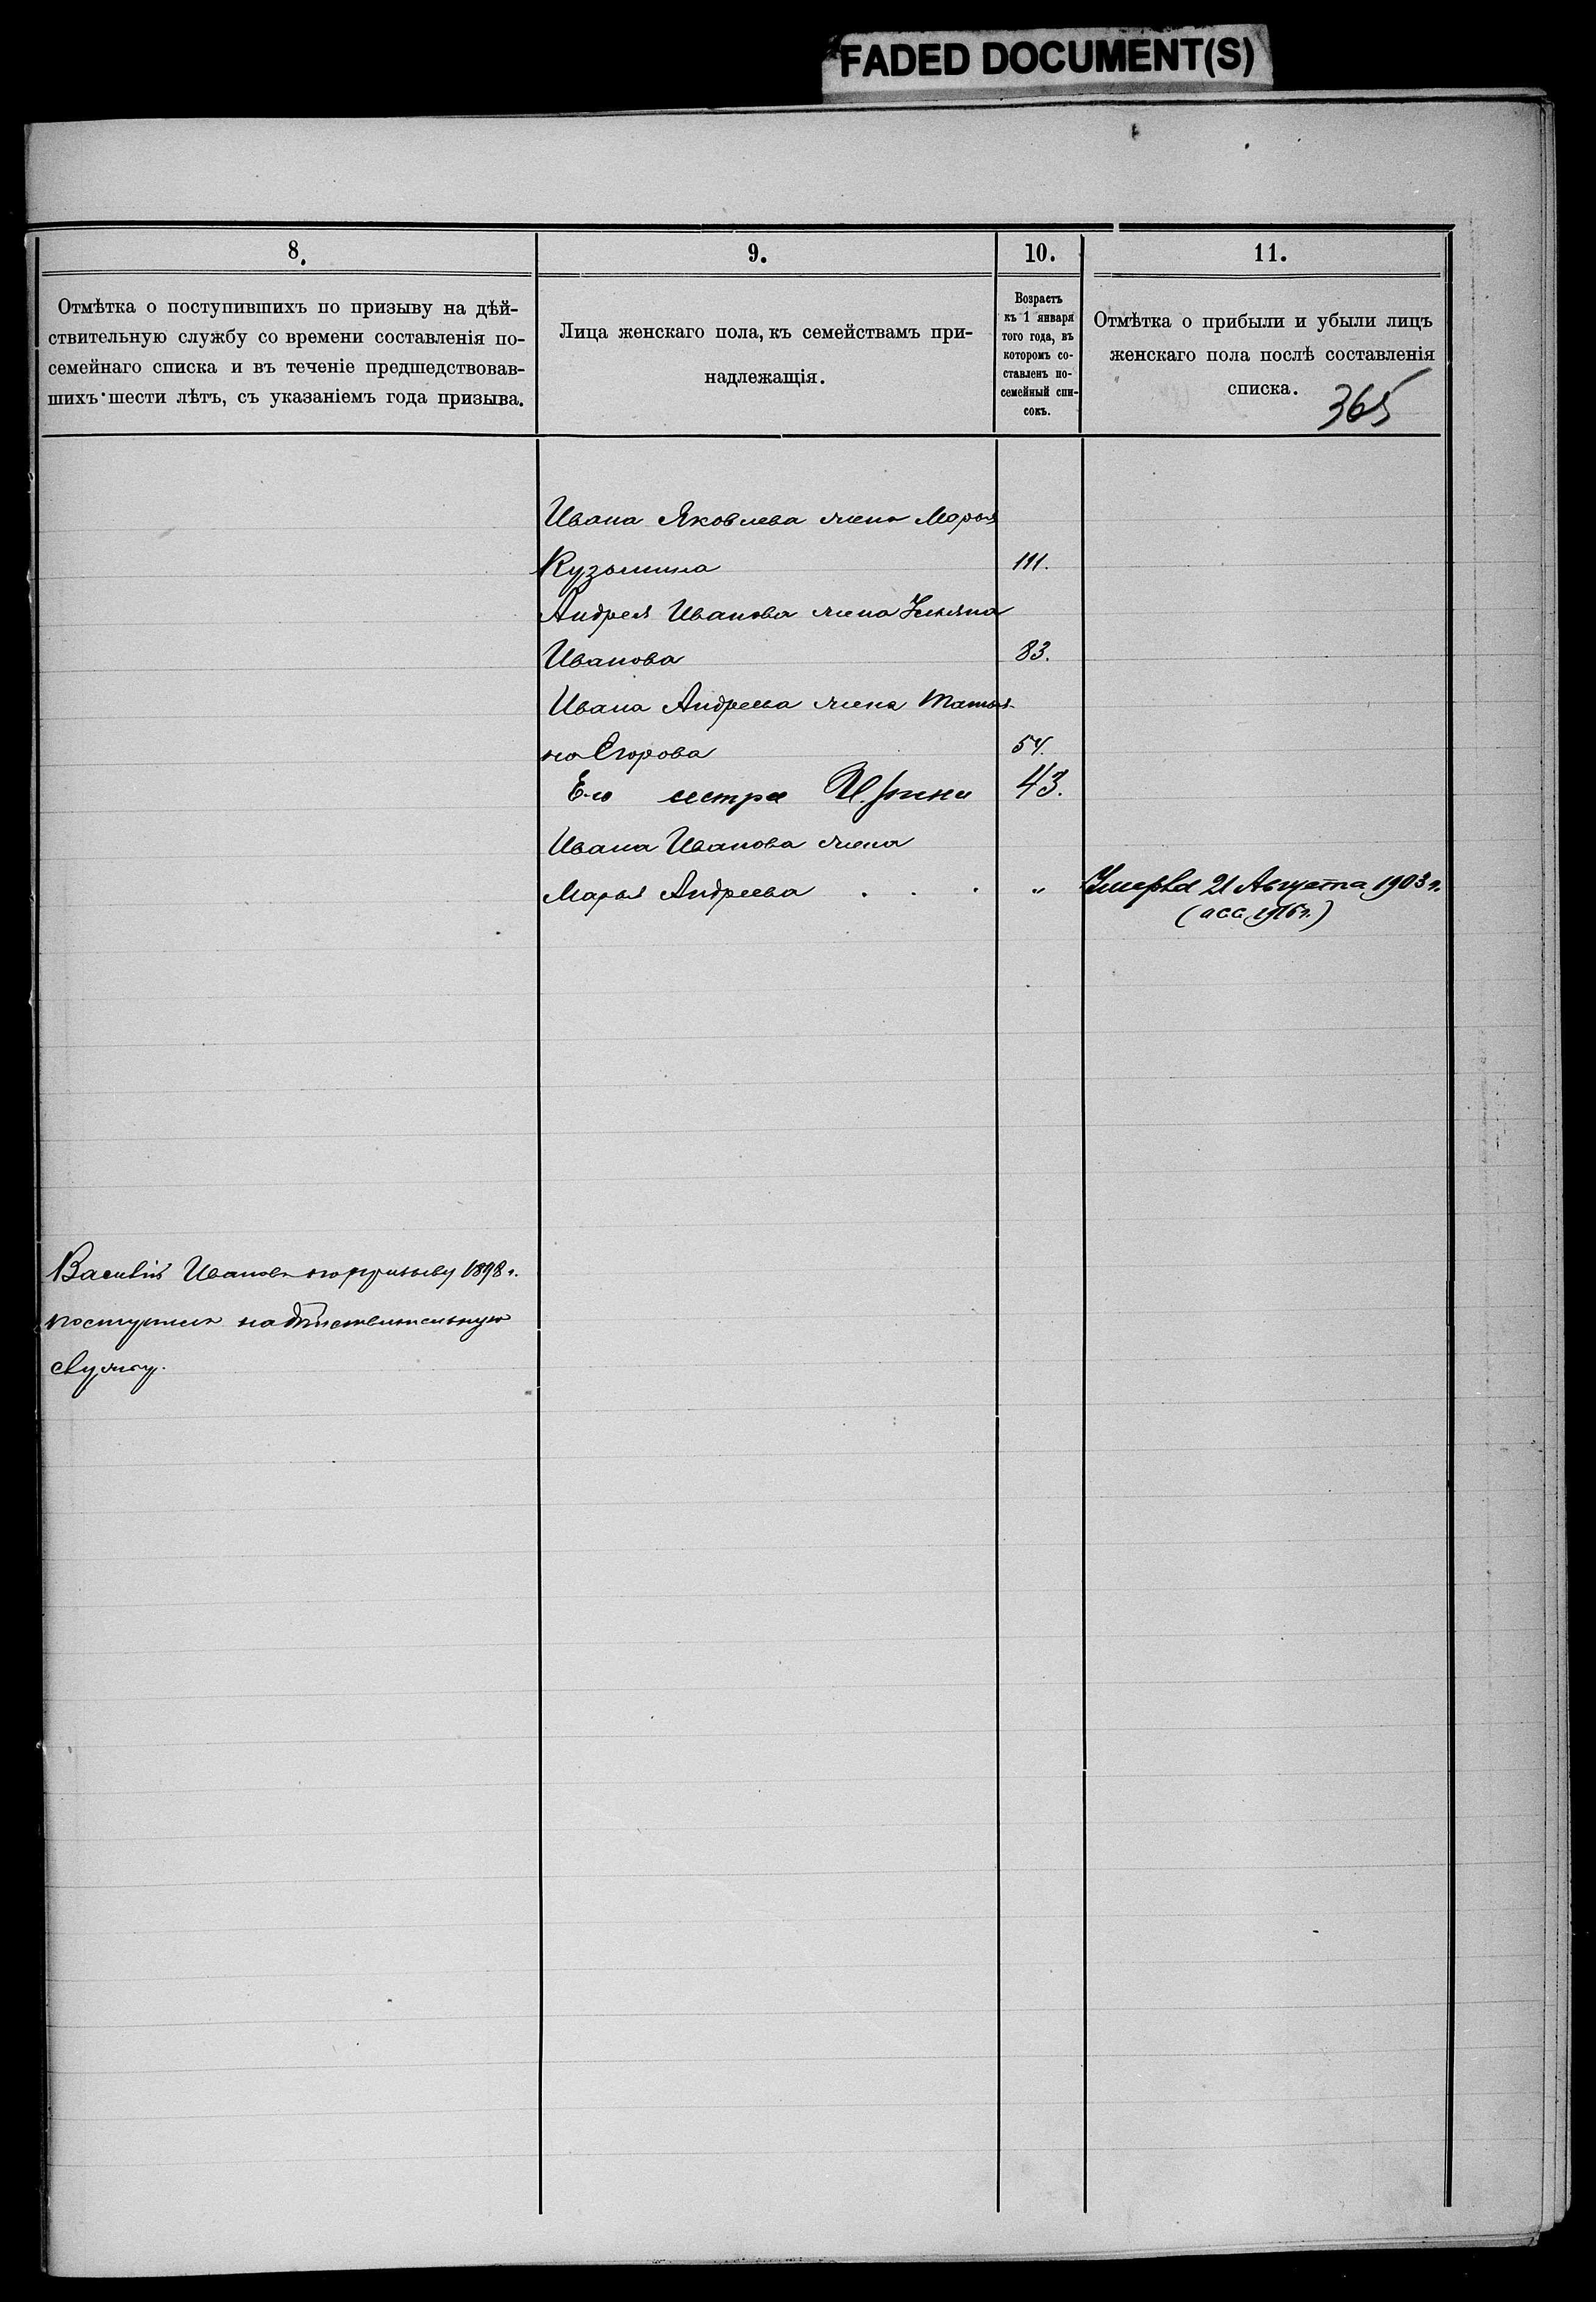 FADED DOCUMENT(S)
8.
9.
10.
11.
Отмѣтка о поступившихъ по призыву на дѣй-
ствительную службу со времени составленія по-
семейнаго списка и въ теченіе предшедствовав-
шихъ шести лѣтъ, съ указаніемъ года призыва.
Лица женскаго пола, къ семействамъ при-
надлежащія.
Возрастъ
къ 1 января
того года, въ
которомъ со-
ставленъ по-
семейный спи-
сокъ.
Отмѣтка о прибыли и убыли лицъ
женскаго пола послѣ составленія
списка.
365
Ивана Яковлева жена Марья
Кузьмина 111.
Андрея Иванова жена Ульяна
Иванова 83.
Ивана Андреева жена Татья-
на Егорова 54.
Его сестра Ирина 43.
Ивана Иванова жена
Марья Андреева . . . „ Умерла 21 Августа 1903 г.
1916 г.)
Василій Ивановъ по призыву 1898 г.
поступилъ на дѣйствительную
службу.